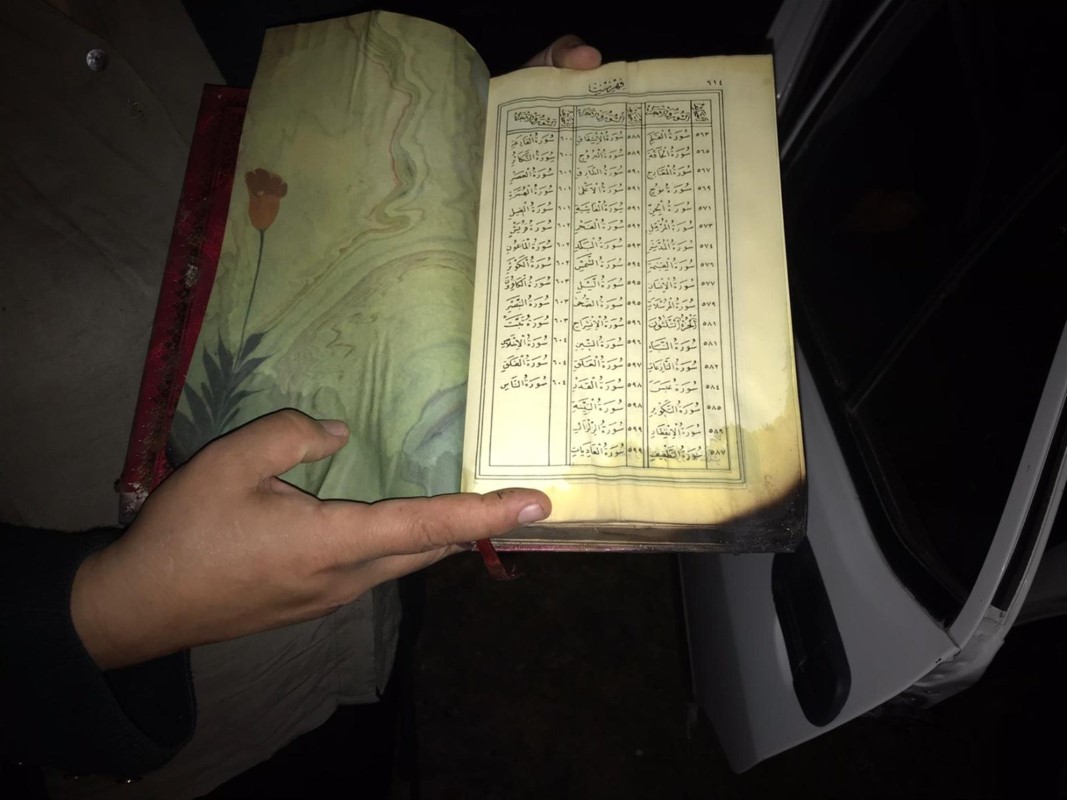 ٦١٤
٥٦٣ سُورَةُ الْقَلَمِ ٥٨٨ سُورَةُ الْاِنْشِقَاقِ ٦٠٠ سُورَةُ الْقَارِعَةِ
٥٦٥ سُورَةُ الْحَاقَّةِ ٥٨٩ سُورَةُ الْبُرُوجِ ٦٠٠ سُورَةُ التَّكَاثُرِ
٥٦٧ سُورَةُ الْمَعَارِجِ ٥٩٠ سُورَةُ الطَّارِقِ ٦٠١ سُورَةُ الْعَصْرِ
٥٦٩ سُورَةُ نُوحٍ ٥٩١ سُورَةُ الْاَعْلٰى ٦٠١ سُورَةُ الْهُمَزَةِ
٥٧١ سُورَةُ الْجِنِّ ٥٩١ سُورَةُ الْغَاشِيَةِ ٦٠١ سُورَةُ الْفِيلِ
٥٧٣ سُورَةُ الْمُزَّمِّلِ ٥٩٢ سُورَةُ الْفَجْرِ ٦٠٢ سُورَةُ قُرَيْشٍ
٥٧٤ سُورَةُ الْمُدَّثِّرِ ٥٩٣ سُورَةُ الْبَلَدِ ٦٠٢ سُورَةُ الْمَاعُونِ
٥٧٦ سُورَةُ الْقِيٰمَةِ ٥٩٤ سُورَةُ الشَّمْسِ ٦٠٢ سُورَةُ الْكَوْثَرِ
٥٧٧ سُورَةُ الْاِنْسَانِ ٥٩٥ سُورَةُ الَّيْلِ ٦٠٣ سُورَةُ الْكَافِرُونَ
٥٧٩ سُورَةُ الْمُرْسَلَاتِ ٥٩٥ سُورَةُ الضُّحٰى ٦٠٣ سُورَةُ النَّصْرِ
٥٨١ اَلْجُزْءُ الثَّلٰثُونَ ٥٩٦ سُورَةُ الْاِنْشِرَاحِ ٦٠٣ سُورَةُ تَبَّتْ
٥٨١ سُورَةُ النَّبَاِ ٥٩٦ سُورَةُ التِّينِ ٦٠٤ سُورَةُ الْاِخْلَاصِ
٥٨٢ سُورَةُ النَّازِعَاتِ ٥٩٧ سُورَةُ الْعَلَقِ ٦٠٤ سُورَةُ الْفَلَقِ
٥٨٤ سُورَةُ عَبَسَ ٥٩٨ سُورَةُ الْقَدْرِ ٦٠٤ سُورَةُ النَّاسِ
٥٨٥ سُورَةُ التَّكْوِيرِ ٥٩٨ سُورَةُ الْبَيِّنَةِ
٥٨٦ سُورَةُ الْاِنْفِطَارِ ٥٩٩ سُورَةُ الزِّلْزَالِ
٥٨٧ سُورَةُ التَّطْفِيفِ ٥٩٩ سُورَةُ الْعَادِيَاتِ